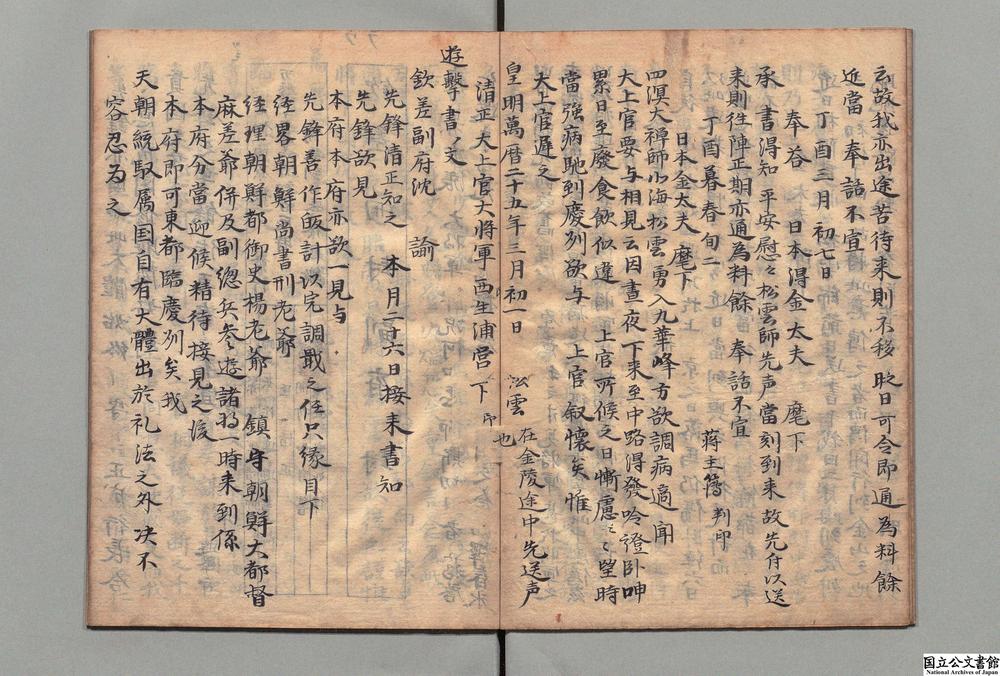 云故我亦出途苦待来則不移　昨日可令即通為料餘
近當奉　話不宣
丁酉三月初七日
奉答　日本得金太夫　麾下
承　書得知　平安慰々松雲師先声當刻到来故先付以送
来則往陣正期亦通為料餘　奉話不宣
丁酉暮春旬二　蒋主簿判印
日本金太夫　麾下
四溟大禅師小海松雲勇入九華峰方欲調病適聞
大上官要与相見云因晝夜下来至中路得發吟證卧呻
累日至廢食飲似違　上官所候之日慚慮々々望時
當強病馳到慶列欲与　上官叙懐矣惟
大上官遅之
皇明萬暦二十五年三月初一日　松雲　在金陵途中先送声也
清正大上官大将軍西生浦営下　印
遊撃書文
欽差副府沈　諭
先鋒清正知之　本月二十六日接来書知
先鋒欲見
本府本府亦欲一見与
先鋒善作皈計以完調戢之任只縁目下
経畧朝鮮尚書刑老爺
経理朝鮮都御史楊老爺　鎮守朝鮮大都督
麻差爺併及副總兵参々遊諸将一時来到係
本府分當迎候精待接見之後
本府即可東都臨慶列矣我
天朝統馭属国自有大體出於礼法之外决不
容忍為之
国立公文書館
National Archives of Japan